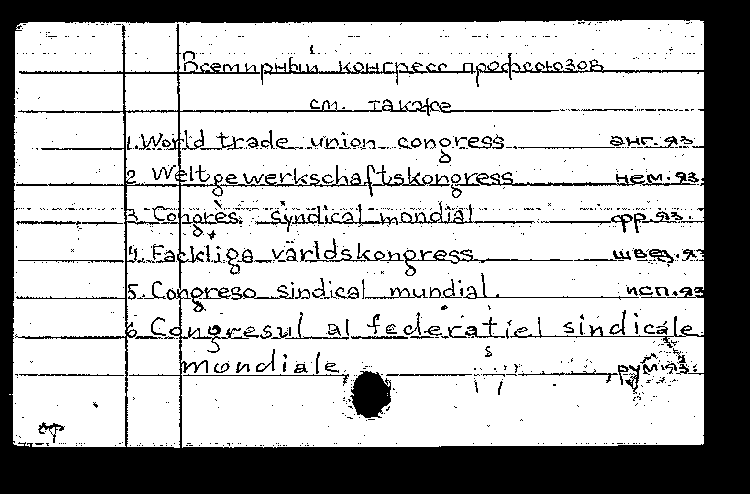 Всемирный конгресс профсоюзов
см. также
1. World trade union congress анг. яз.
2. Weltgewerkschaftskongress нем. яз.
3. Congrès syndical mondial фр. яз.
4. Fackliga världskongress швед. яз
5. Congreso sindical mundial. исп. яз
6. Congresul al federaţiei sindicale
mondiale рум. яз.